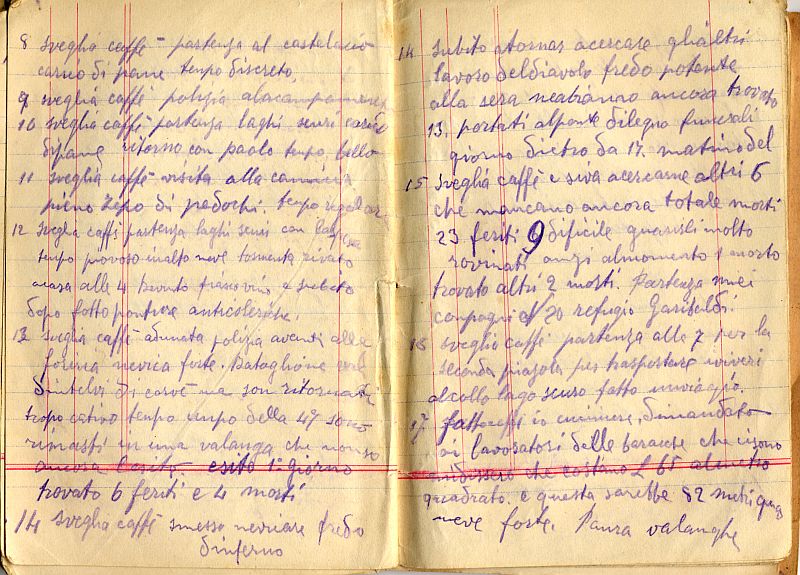 8 sveglia caffè partenza al castelacio
carico di pane tempo discreto,
9 sveglia caffè polizia alacampamento
10 sveglia caffè partenza laghi seusi carico
dipane ritorno con paolo tempo bello
11 sveglia caffè visita alla camicia
pieno zepo di pedochi. tempo regolare
12 sveglia caffè partenza laghi seusi con
tempo piovoso inalto neve tormenta rivato
acasa alle 4 bevuto fiasco vino e subito
dopo fatto pontura anticolerica.
13 sveglia caffè adunata polizia avanti alla
fosina nevica forte. Bataglione
di corvè ma son ritornati
tropo cativo tempo della 49 sono
rimasti in una valanga che non so
ancora esito 1° giorno
trovato 6 feriti e 4 morti
14 sveglia caffè smesso nevicare fredo
dinferno
14 subito atornar acercare gli altri
lavoro deldiavolo fredo potente
alla sera neabianno ancora trovato
13. portati alponte dilegno funerali
giorno dietro da 17. matino del
15 sveglia caffè e siva acercarne altri 6
che mancano ancora totale morti
23 feriti 9 dificile guarirli molto
rovinati anzi almomento 1 morto
trovato altri 2 morti. Partenza miei
compagni N 20 refugio Garibaldi.
18 sveglia caffè partenza alle 7 per la
seconda piazola per trasportare viveri
alcollo lago scuro fatto unviaggio.
17. fattocaffè io enimere, dimandato
ai lavoratori delle baracche che cisono
che costano L 65 almetro
quadrato. e questa sarebbe 82 metri quas
neve forte. Paura valanghe